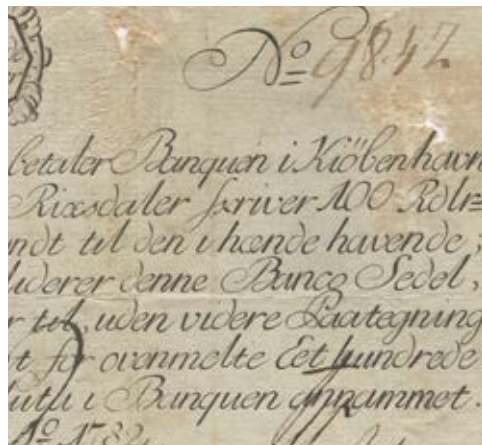 No 9842
betaler Banquen i Kiöbenhavn
Rixsdaler skriver 100 Rdlr=
ndt til den i hænde havende;
liderer denne Banco Sedel,
r til, uden videre Paategning
t for ovenmelte Eet hundrede
luta i Banquen annammet.
Ao 1782